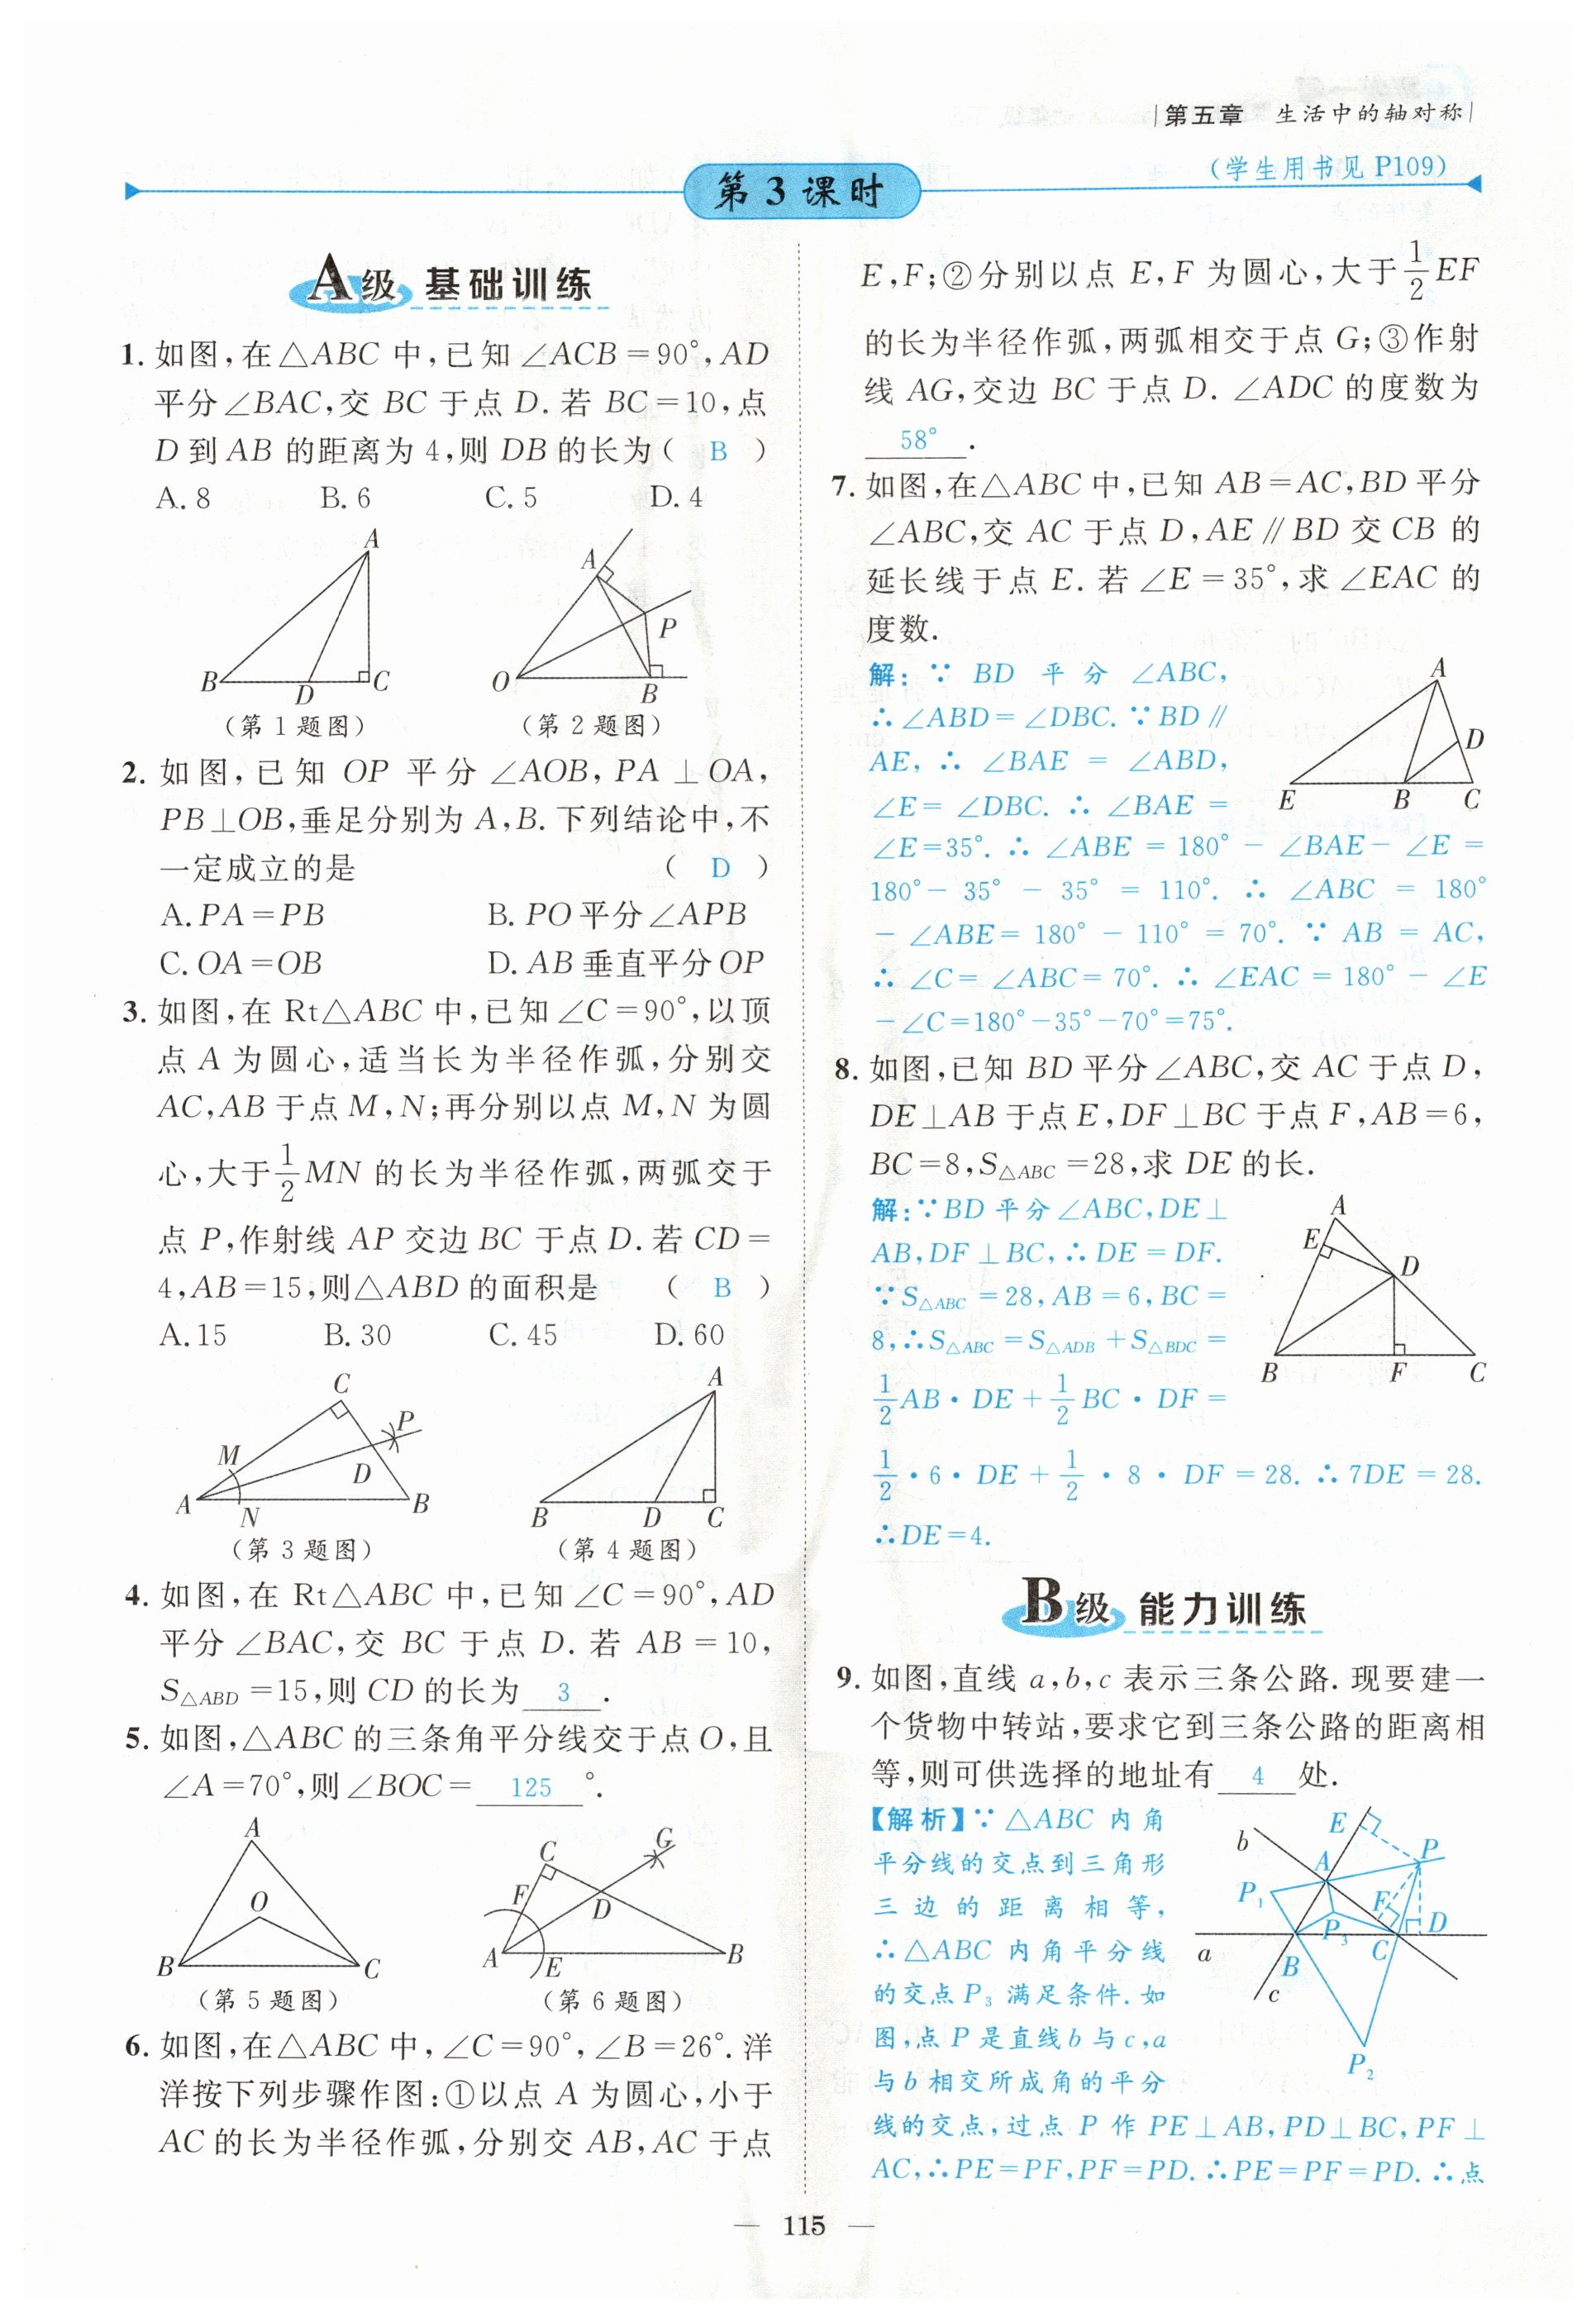 第五章 生活中的轴对称
(学生用书见 P109)
第 3 课时
A级 基础训练
1. 如图,在△ABC 中,已知∠ACB=90°,AD
平分∠BAC,交 BC 于点 D. 若 BC=10,点
D 到 AB 的距离为 4,则 DB 的长为( B )
A. 8 B. 6 C. 5 D. 4
A
B D C
A
P
O B
(第 1 题图) (第 2 题图)
2. 如图,已知 OP 平分∠AOB,PA⊥OA,
PB⊥OB,垂足分别为 A,B. 下列结论中,不
一定成立的是 ( D )
A. PA=PB B. PO 平分∠APB
C. OA=OB D. AB 垂直平分 OP
3. 如图,在 Rt△ABC 中,已知∠C=90°,以顶
点 A 为圆心,适当长为半径作弧,分别交
AC,AB 于点 M,N;再分别以点 M,N 为圆
心,大于1/2MN 的长为半径作弧,两弧交于
点 P,作射线 AP 交边 BC 于点 D. 若 CD=
4,AB=15,则△ABD 的面积是 ( B )
A. 15 B. 30 C. 45 D. 60
C
P
M
D
A N B
A
B D C
(第 3 题图) (第 4 题图)
4. 如图,在 Rt△ABC 中,已知∠C=90°,AD
平分∠BAC,交 BC 于点 D. 若 AB=10,
S△ABD=15,则 CD 的长为 3 .
5. 如图,△ABC 的三条角平分线交于点 O,且
∠A=70°,则∠BOC= 125 °.
A
O
B C
C G
F
D
A E B
(第 5 题图) (第 6 题图)
6. 如图,在△ABC 中,∠C=90°,∠B=26°. 洋
洋按下列步骤作图:①以点 A 为圆心,小于
AC 的长为半径作弧,分别交 AB,AC 于点
E,F;②分别以点 E,F 为圆心,大于1/2EF
的长为半径作弧,两弧相交于点 G;③作射
线 AG,交边 BC 于点 D. ∠ADC 的度数为
58° .
7. 如图,在△ABC 中,已知 AB=AC,BD 平分
∠ABC,交 AC 于点 D,AE∥BD 交 CB 的
延长线于点 E. 若∠E=35°,求∠EAC 的
度数.
解:∵ BD 平分 ∠ABC,
∴∠ABD=∠DBC. ∵BD∥
AE,∴ ∠BAE = ∠ABD,
∠E= ∠DBC. ∴ ∠BAE =
∠E=35°. ∴ ∠ABE = 180° - ∠BAE- ∠E =
180°- 35° - 35° = 110°. ∴ ∠ABC = 180°
- ∠ABE= 180° - 110° = 70°. ∵ AB = AC,
∴ ∠C= ∠ABC= 70°. ∴ ∠EAC = 180° - ∠E
-∠C=180°-35°-70°=75°.
A
D
E B C
8. 如图,已知 BD 平分∠ABC,交 AC 于点 D,
DE⊥AB 于点 E,DF⊥BC 于点 F,AB=6,
BC=8,S△ABC=28,求 DE 的长.
解:∵BD 平分∠ABC,DE⊥
AB,DF⊥BC,∴DE=DF.
∵S△ABC=28,AB=6,BC=
8,∴S△ABC=S△ADB+S△BDC=
1/2AB·DE+1/2BC·DF=
1/2·6·DE+1/2·8·DF=28. ∴7DE=28.
∴DE=4.
A
E
D
B F C
B级 能力训练
9. 如图,直线 a,b,c 表示三条公路. 现要建一
个货物中转站,要求它到三条公路的距离相
等,则可供选择的地址有 4 处.
【解析】∵△ABC 内角
平分线的交点到三角形
三边的距离相等,
∴△ABC 内角平分线
的交点 P₃ 满足条件. 如
图,点 P 是直线 b 与 c,a
与 b 相交所成角的平分
线的交点,过点 P 作 PE⊥AB,PD⊥BC,PF⊥
AC,∴PE=PF,PF=PD. ∴PE=PF=PD. ∴点
E
b P
A
P₁ F
P₃ D
a B C
c
P₂
115